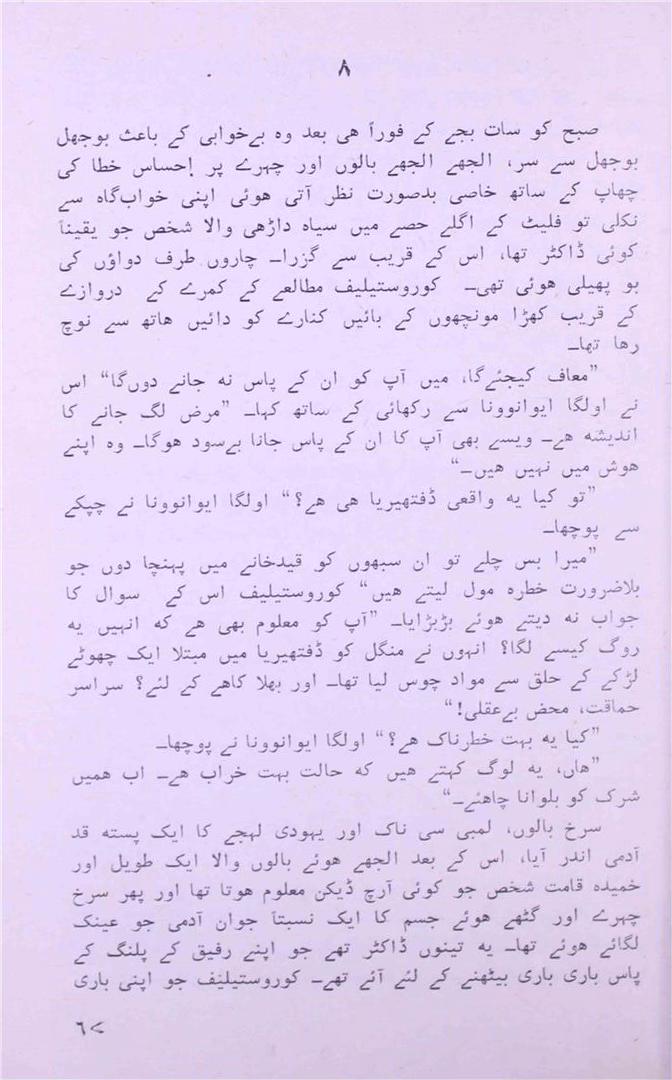 ۸
صبح کو سات بجے کے فوراً هی بعد وه بےخوابی کے باعث بوجهل
بوجهل سے سر، الجھے الجھے بالوں اور چہرے پر إحساس خطا کی
چهاپ کے ساتھ خاصی بدصورت نظر آتی هوئی اپنی خواب‌گاه سے
نکلی تو فلیٹ کے اگلے حصے میں سیاه داڑھی والا شخص جو یقیناً
کوئی ڈاکٹر تھا، اس کے قریب سے گزرا۔ چاروں طرف دواؤں کی
بو پھیلی هوئی تھی۔ کوروستیلیف مطالعے کے کمرے کے دروازے
کے قریب کھڑا مونچھوں کے بائیں کنارے کو دائیں هاتھ سے نوچ
رها تھا۔
”معاف کیجئےگا، میں آپ کو ان کے پاس نه جانے دوں‌گا“ اس
نے اولگا ایوانوونا سے رکھائی کے ساتھ کہا۔ ”مرض لگ جانے کا
اندیشه هے۔ ویسے بھی آپ کا ان کے پاس جانا بےسود هوگا۔ وه اپنے
هوش میں نہیں هیں۔“
”تو کیا یه واقعی ڈفتھیریا هی هے؟“ اولگا ایوانوونا نے چپکے
سے پوچھا۔
”میرا بس چلے تو ان سبھوں کو قیدخانے میں پہنچا دوں جو
بلاضرورت خطره مول لیتے هیں“ کوروستیلیف اس کے سوال کا
جواب نه دیتے هوئے بڑبڑایا۔ ”آپ کو معلوم بھی هے که انہیں یه
روگ کیسے لگا؟ انہوں نے منگل کو ڈفتھیریا میں مبتلا ایک چھوٹے
لڑکے کے حلق سے مواد چوس لیا تھا۔ اور بھلا کاهے کے لئے؟ سراسر
حماقت، محض بےعقلی!“
”کیا یه بہت خطرناک هے؟“ اولگا ایوانوونا نے پوچھا۔
”هاں، یه لوگ کہتے هیں که حالت بہت خراب هے۔ اب همیں
شرک کو بلوانا چاهئے۔“
سرخ بالوں، لمبی سی ناک اور یہودی لہجے کا ایک پسته قد
آدمی اندر آیا، اس کے بعد الجھے هوئے بالوں والا ایک طویل اور
خمیده قامت شخص جو کوئی آرچ ڈیکن معلوم هوتا تھا اور پھر سرخ
چہرے اور گٹھے هوئے جسم کا ایک نسبتاً جوان آدمی جو عینک
لگائے هوئے تھا۔ یه تینوں ڈاکٹر تھے جو اپنے رفیق کے پلنگ کے
پاس باری باری بیٹھنے کے لئے آئے تھے۔ کوروستیلیف جو اپنی باری
۶۷